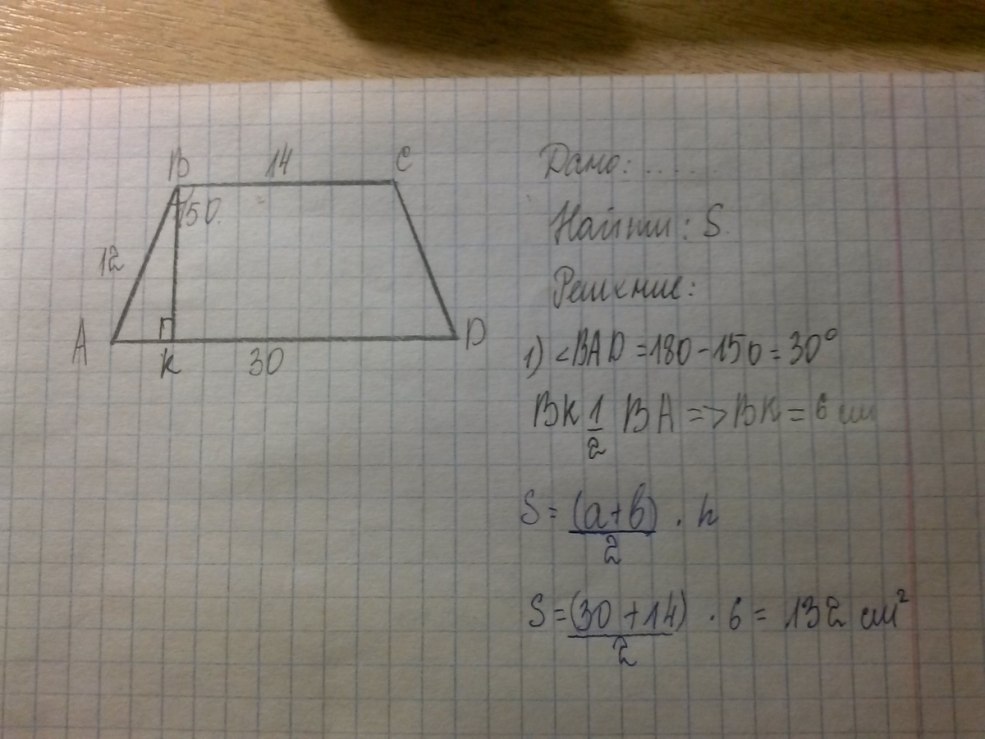 B 14 C
150
12
A K 30 D
Дано: .....
Найти: S
Решение:
1) <BAD =180-150=30°
BK 1/2 BA => BK = 6 см
S = (a+b)/2 · h
S = (30+14)/2 · 6 = 132 см²